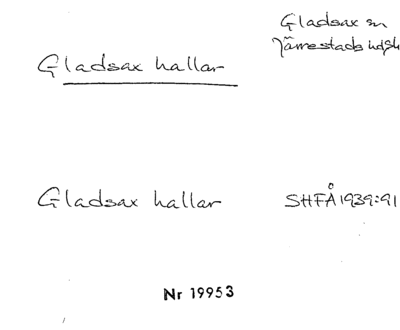 Gladsax sn
Järrestads hdsk
Gladsax hallar
Gladsax hallar
SHFÅ 1939:91
Nr 19953